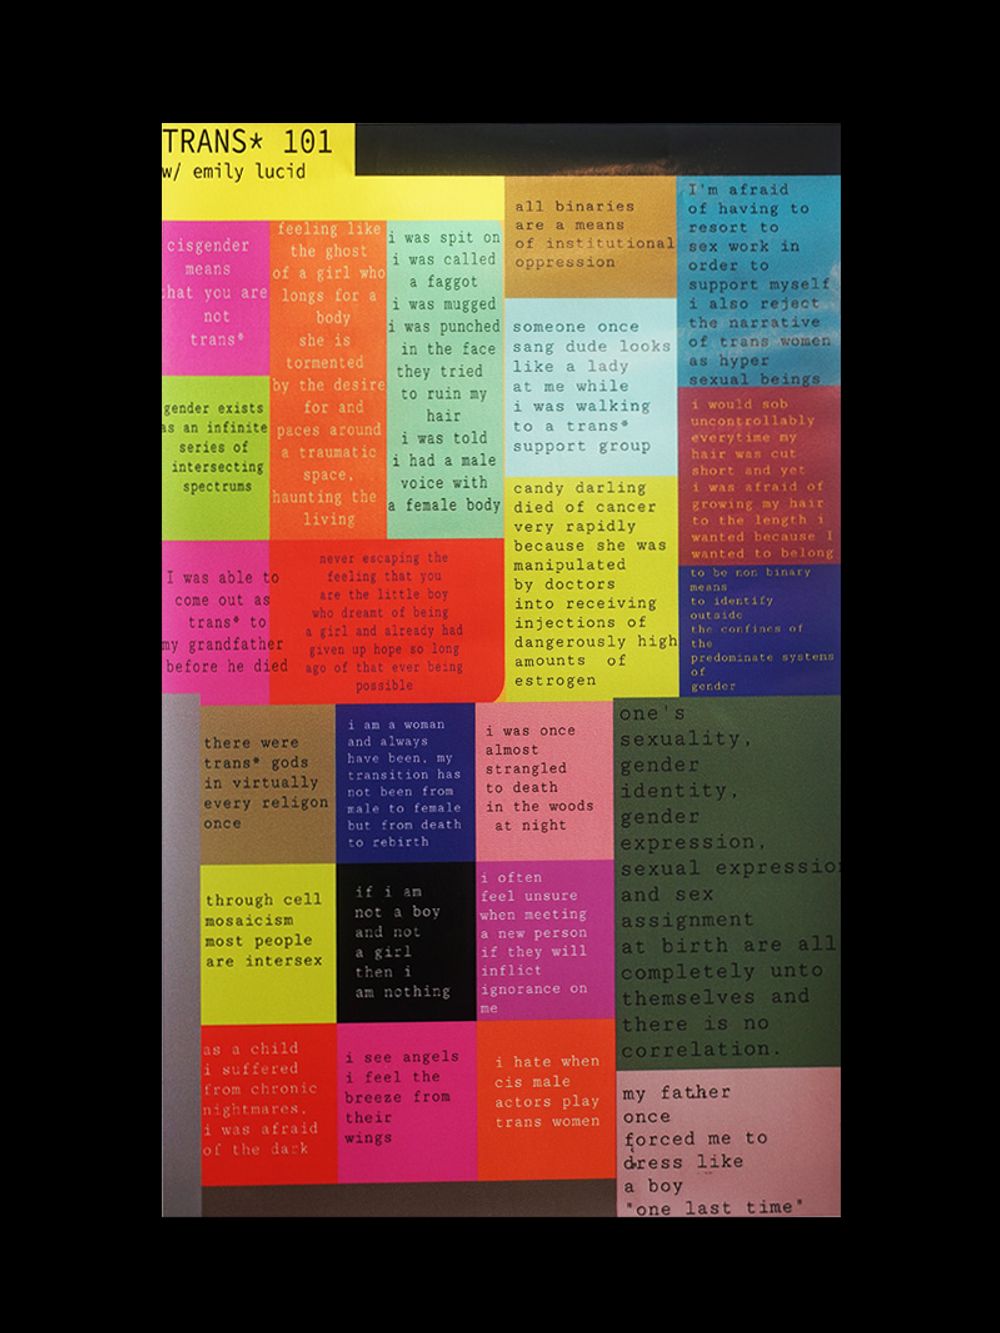 TRANS* 101
w/ emily lucid
cisgender
means
that you are
not
trans*
gender exists
as an infinite
series of
intersecting
spectrums
feeling like
the ghost
of a girl who
longs for a
body
she is
tormented
by the desire
for and
paces around
a traumatic
space,
haunting the
living
i was spit on
i was called
a faggot
i was mugged
i was punched
in the face
they tried
to ruin my
hair
i was told
i had a male
voice with
a female body
all binaries
are a means
of institutional
oppression
someone once
sang dude looks
like a lady
at me while
i was walking
to a trans*
support group
I'm afraid
of having to
resort to
sex work in
order to
support myself
i also reject
the narrative
of trans women
as hyper
sexual beings
i would sob
uncontrollably
everytime my
hair was cut
short and yet
i was afraid of
growing my hair
to the length i
wanted because I
wanted to belong
candy darling
died of cancer
very rapidly
because she was
manipulated
by doctors
into receiving
injections of
dangerously high
amounts of
estrogen
to be non binary
means
to identify
outside
the confines of
the
predominate systems
of
gender
I was able to
come out as
trans* to
my grandfather
before he died
never escaping the
feeling that you
are the little boy
who dreamt of being
a girl and already had
given up hope so long
ago of that ever being
possible
there were
trans* gods
in virtually
every religon
once
i am a woman
and always
have been, my
transition has
not been from
male to female
but from death
to rebirth
i was once
almost
strangled
to death
in the woods
at night
one's
sexuality,
gender
identity,
gender
expression,
sexual expression
and sex
assignment
at birth are all
completely unto
themselves and
there is no
correlation.
through cell
mosaicism
most people
are intersex
if i am
not a boy
and not
a girl
then i
am nothing
i often
feel unsure
when meeting
a new person
if they will
inflict
ignorance on
me
as a child
i suffered
from chronic
nightmares,
i was afraid
of the dark
i see angels
i feel the
breeze from
their
wings
i hate when
cis male
actors play
trans women
my father
once
forced me to
dress like
a boy
"one last time"